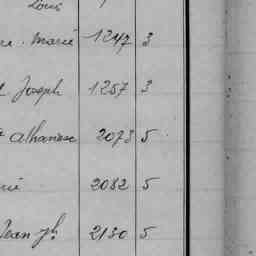 Louis
Marie 1247 3
Joseph 1257 3
athanase 2073 5
2082 5
Jean Jh. 2130 5